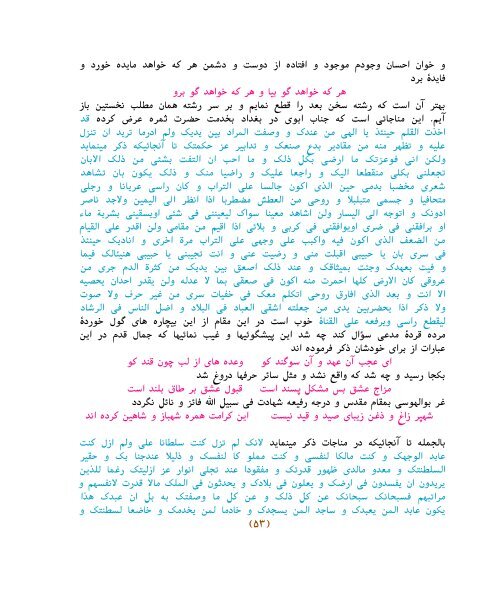 و خوان احسان وجودم موجود و افتاده از دوست و دشمن هر که خواهد مایده خورد و
فایدهٔ برد
هر که خواهد گو بیا و هر که خواهد گو برو
بهتر آن است که رشته سخن بعد را قطع نمایم و بر سر رشته همان مطلب نخستین باز
آیم. این مناجاتی است که جناب ابوی در بغداد بخدمت حضرت ثمره عرض کرده قد
اخذت القلم حینئذ یا الهی من عندک و وصفت المراد بین یدیک ولم ادرما ترید ان تنزل
علیه و تظهر منه من مقادیر بدع صنعک و تدابیر عز حکمتک تا آنجائیکه ذکر مینماید
ولکن انی فوعزتک ما ارضی بکل ذلک و ما احب ان التفت بشئی من ذلک الابان
تجعلنی بکلی منقطعا الیک و راجعا علیک و راضیا منک و ذلک یکون بان تشاهد
شعری مخضبا بدمی حین الذی اکون جالسا علی التراب و کان راسی عریانا و رجلی
متحافیا و جسمی متبلبلا و روحی من العطش مضطربا اذا انظر الی الیمین ولاجد ناصر
ادونک و اتوجه الی الیسار ولن اشاهد معینا سواک لیعیننی فی شئی اویسقینی بشربة ماء
او برافقنی فی ضری اویوافقنی فی کربی و بلائی اذا اقیم من مقامی ولن اقدر علی القیام
من الضعف الذی اکون فیه واکبب علی وجهی علی التراب مرة اخری و انادیک حینئذ
فی سری بان یا حبیبی اقبلت منی و رضیت عنی و انت تجیبنی یا حبیبی هنیئالک فیما
و فیت بعهدک وجئت بمیثاقک و عند ذلک اصعق بین یدیک من کثرة الدم جری من
عروقی کان الارض کلها احمرت منه اکون فی صعقی بما لا عدله ولن یقدر احدان یحصیه
الا انت و بعد الذی افارق روحی اتکلم معک فی خفیات سری من غیر حرف ولا صوت
ولا ذکر اذا یحضربین یدی من جعلته اشقی العباد فی البلاد و اضل الناس فی الرشاد
لیقطع راسی ویرفعه علی القناة خوب است در این مقام از این بیچاره های گول خوردهٔ
مرده قردهٔ مدعی سؤال کند چه شد این پیشگوئیها و غیب نمائیها که جمال قدم در این
عبارات از برای خودشان ذکر فرموده اند
ای عجب آن عهد و آن سوگند کو وعده های از لب چون قند کو
بکجا رسید و چه شد که واقع نشد و مثل سائر حرفها دروغ شد
مزاج عشق بس مشکل پسند است قبول عشق بر طاق بلند است
غر بوالهوسی بمقام مقدس و درجه رفیعه شهادت فی سبیل الله فائز و نائل نگردد
شهپر زاغ و ذغن زیبای صید و قید نیست این کرامت همره شهباز و شاهین کرده اند
بالجمله تا آنجائیکه در مناجات ذکر مینماید لانک لم تزل کنت سلطانا علی ولم ازل کنت
عابد الوجهک و کنت مالکا لنفسی و کنت مملو کا لنفسک و ذلیلا عندجنا بک و حقیر
السلطنتک و معدو مالدی ظهور قدرتک و مفقودا عند تجلی انوار عز ازلیتک رغما للذین
یریدون ان یفسدون فی ارضک و یعلون فی بلادک و یحدثون فی الملک مالا قدرت لانفسهم و
مراتبهم فسبحانک سبحانک عن کل ذلک و عن کل ما وصفتک به بل ان عبدک هذا
یکون عابد المن یعبدک و ساجد المن یسجدک و خادما لمن یخدمک و خاضعا لسطنتک و
(۵۳)